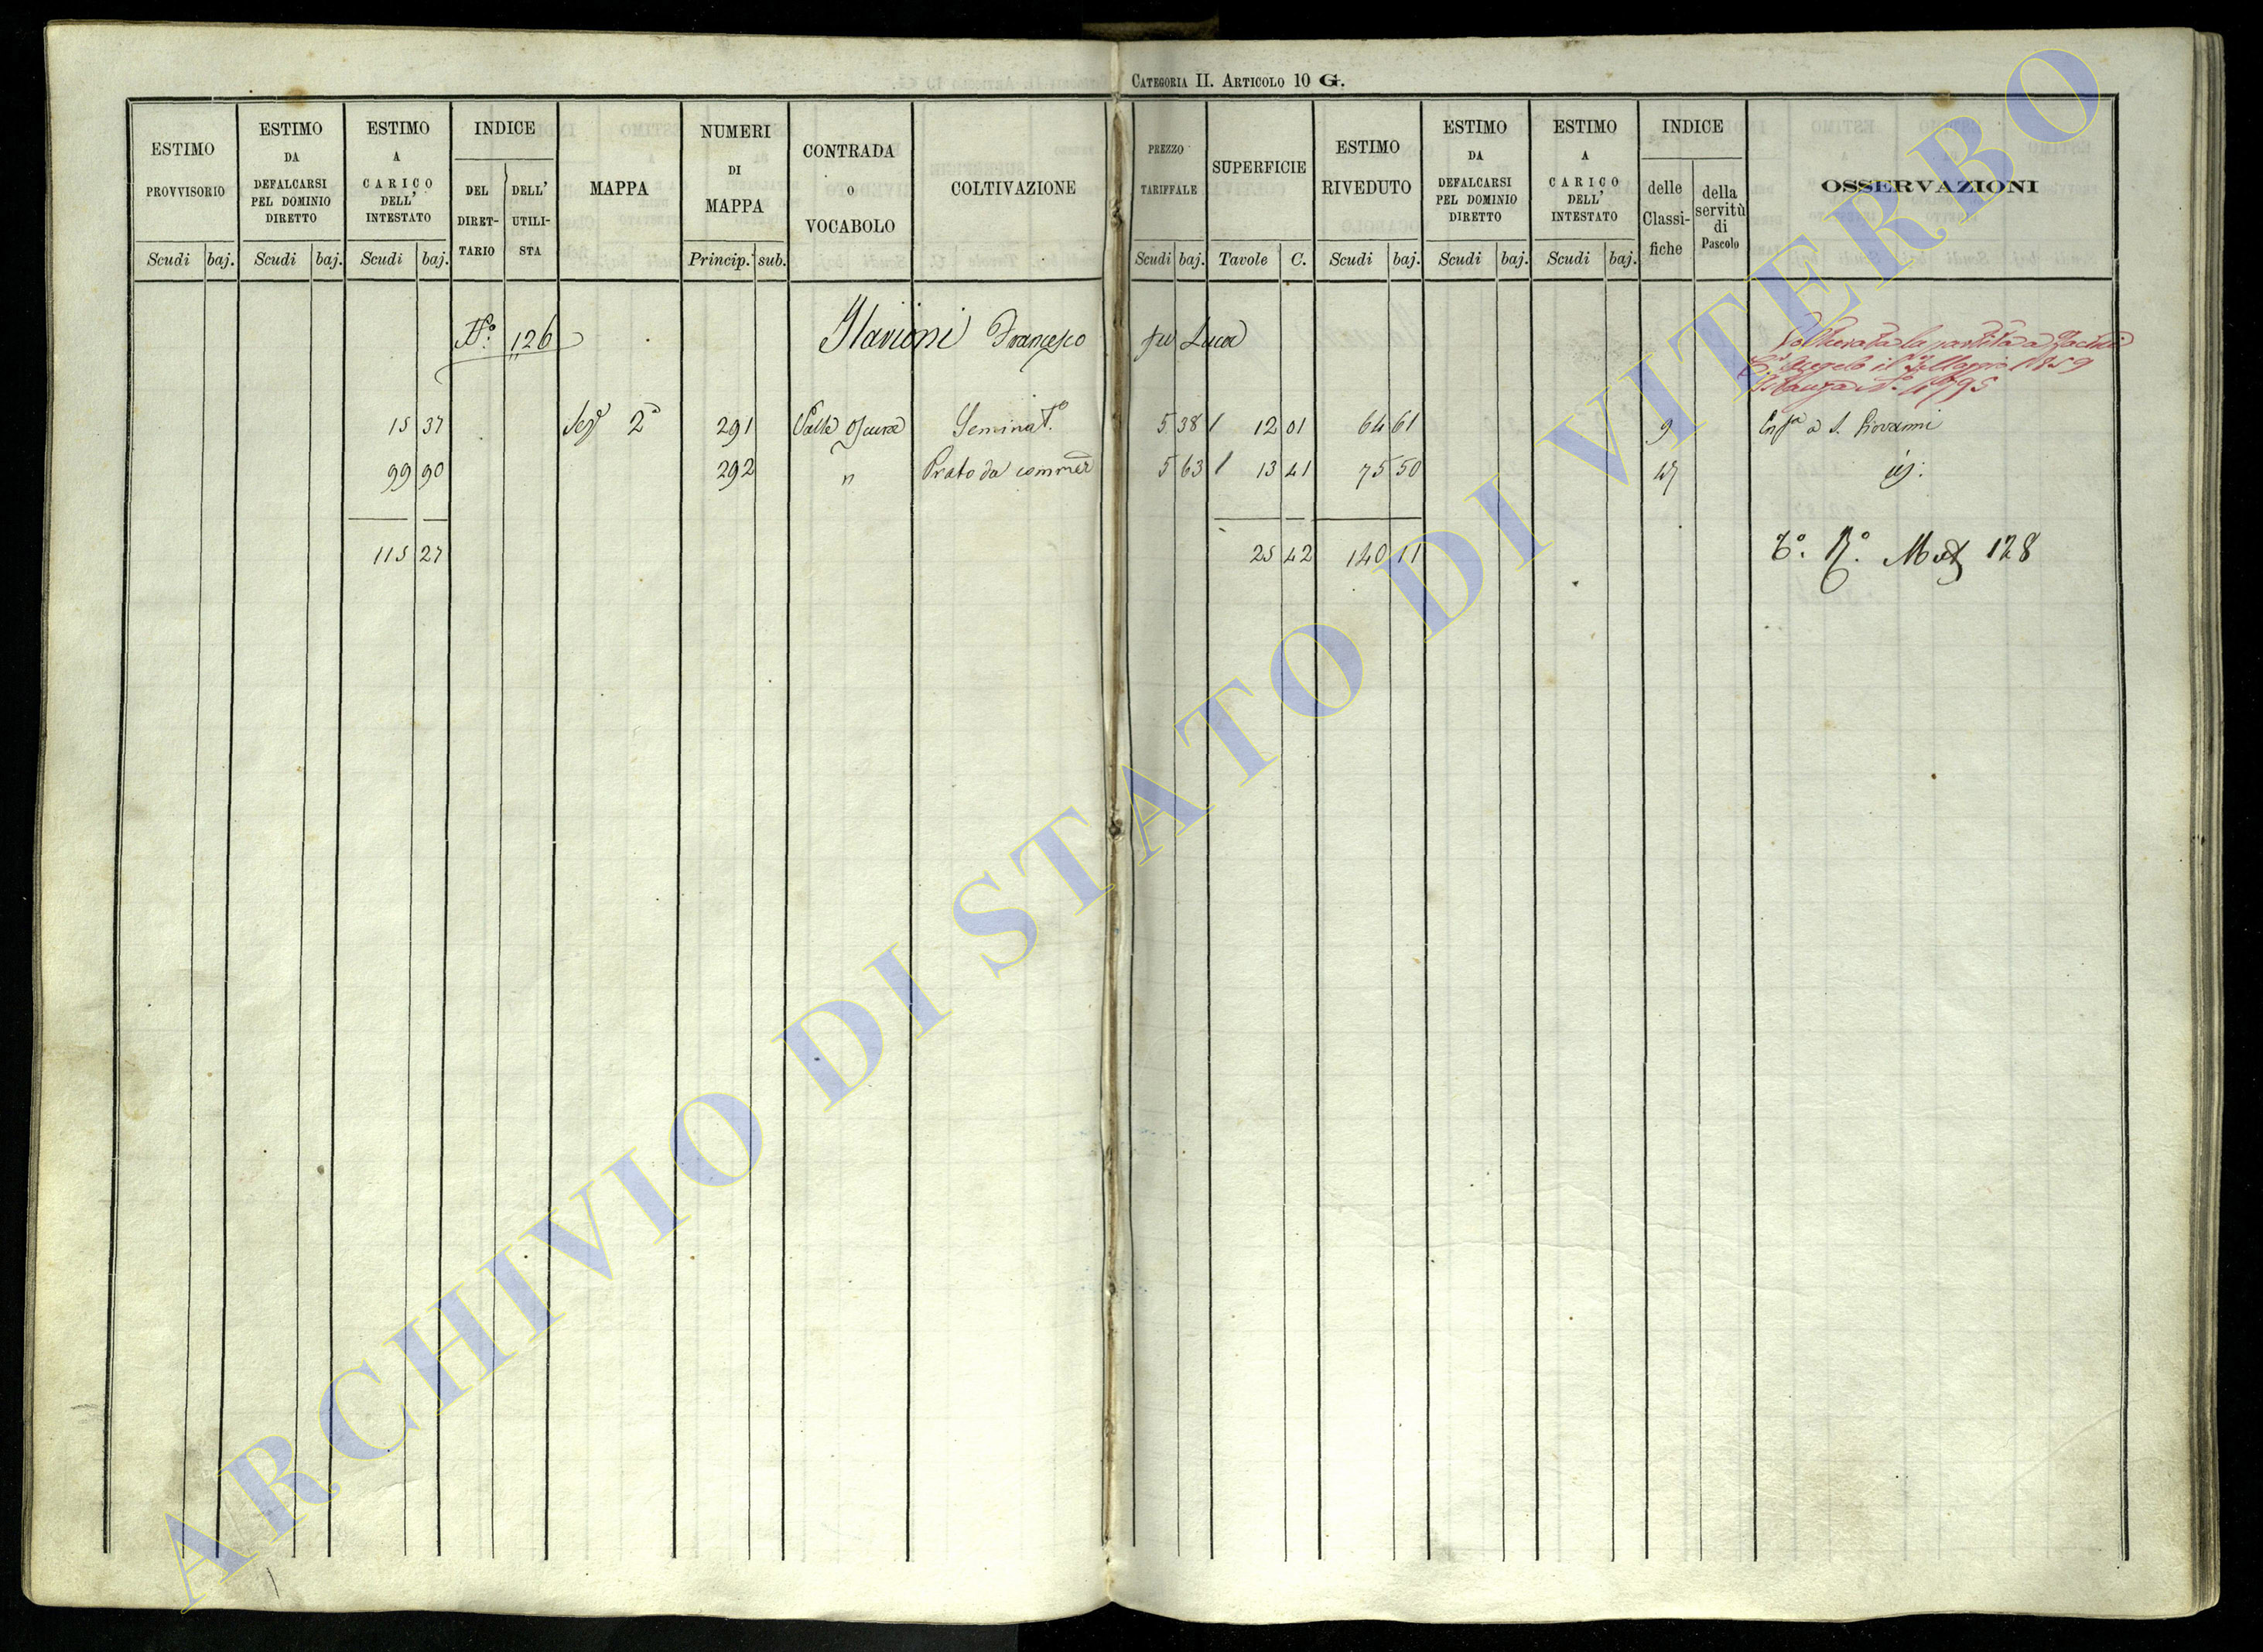 CATEGORIA II. ARTICOLO 10 G.
ESTIMO PROVVISORIO
Scudi baj.
ESTIMO DA DEFALCARSI PEL DOMINIO DIRETTO
Scudi baj.
ESTIMO A CARICO DELL' INTESTATO
Scudi baj.
INDICE
DEL DIRET-
TARIO
DELL' UTILI-
STA
MAPPA
NUMERI DI MAPPA
Princip. sub.
CONTRADA O VOCABOLO
COLTIVAZIONE
PREZZO TARIFFALE
Scudi baj.
SUPERFICIE
Tavole C.
ESTIMO RIVEDUTO
Scudi baj.
ESTIMO DA DEFALCARSI PEL DOMINIO DIRETTO
Scudi baj.
ESTIMO A CARICO DELL' INTESTATO
Scudi baj.
INDICE
delle Classi-
fiche
della servitù di Pascolo
OSSERVAZIONI
N.º 126 Francesco fu Luca
la partita a
Angelo il Maggio 1859
Istanza N.º
15 37 Sez.e 2ª 291 Valle Oscura Seminat.º 5 38 12 01 64 61 9 Enf.ª a S. Giovanni
99 90 292 " Prato da 5 63 13 41 75 50 47
115 27 25 42 140 11 128
ARCHIVIO DI STATO DI VITERBO